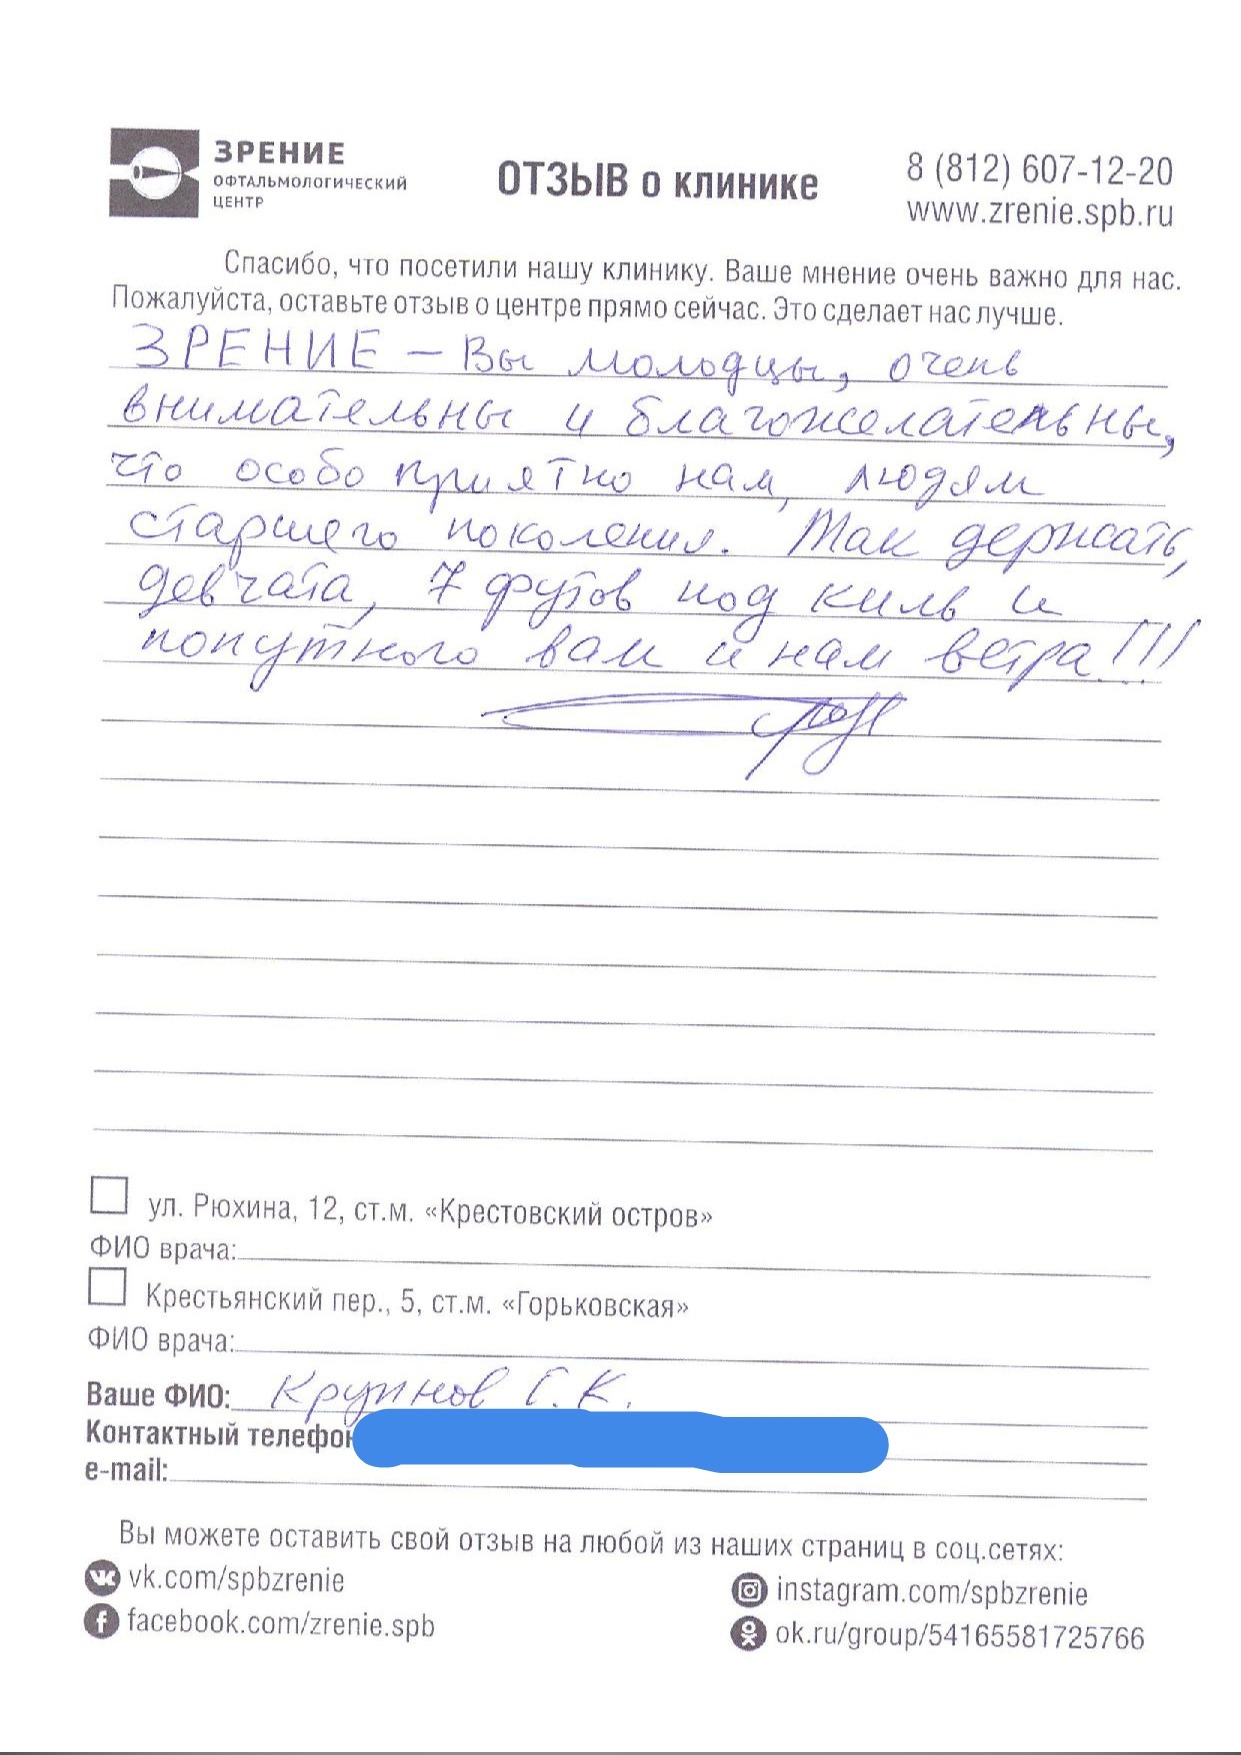 ЗРЕНИЕ
ОФТАЛЬМОЛОГИЧЕСКИЙ
ЦЕНТР
ОТЗЫВ о клинике
8 (812) 607-12-20
www.zrenie.spb.ru
Спасибо, что посетили нашу клинику. Ваше мнение очень важно для нас.
Пожалуйста, оставьте отзыв о центре прямо сейчас. Это сделает нас лучше.
ЗРЕНИЕ – Вы молодцы, очень
внимательны и благожелательны,
что особо приятно нам, людям
старшего поколения. Так держать,
девчата, 7 футов под киль и
попутного вам и нам ветра!!!
ул. Рюхина, 12, ст.м. «Крестовский остров»
ФИО врача:
Крестьянский пер., 5, ст.м. «Горьковская»
ФИО врача:
Ваше ФИО: Крупнов Г.К.
Контактный телефон
e-mail:
Вы можете оставить свой отзыв на любой из наших страниц в соц.сетях:
vk.com/spbzrenie
instagram.com/spbzrenie
facebook.com/zrenie.spb
ok.ru/group/54165581725766